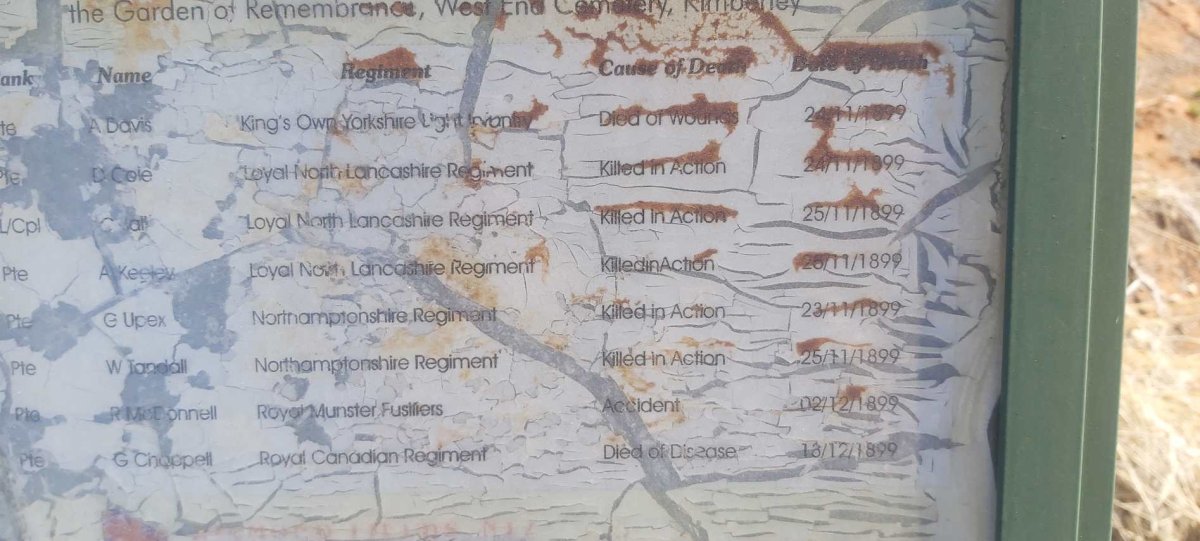 the Garden of Remembrance, West End Cemetery, Kimberley
ank Name Regiment Cause of Death Date of Death
te A Davis King's Own Yorkshire Light Infantry Died of Wounds 24/11/1899
Pte D Cole Loyal North Lancashire Regiment Killed in Action 24/11/1899
L/Cpl C Loyal North Lancashire Regiment Killed in Action 25/11/1899
Pte A Keeley Loyal North Lancashire Regiment KilledinAction /11/1899
Pte G Upex Northamptonshire Regiment Killed in Action 23/11/1899
Pte W Northamptonshire Regiment Killed in Action 25/11/1899
Pte R McDonnell Royal Munster Fusiliers Accident 02/12/1899
Pte G Chappell Royal Canadian Regiment Died of Disease 13/12/1899